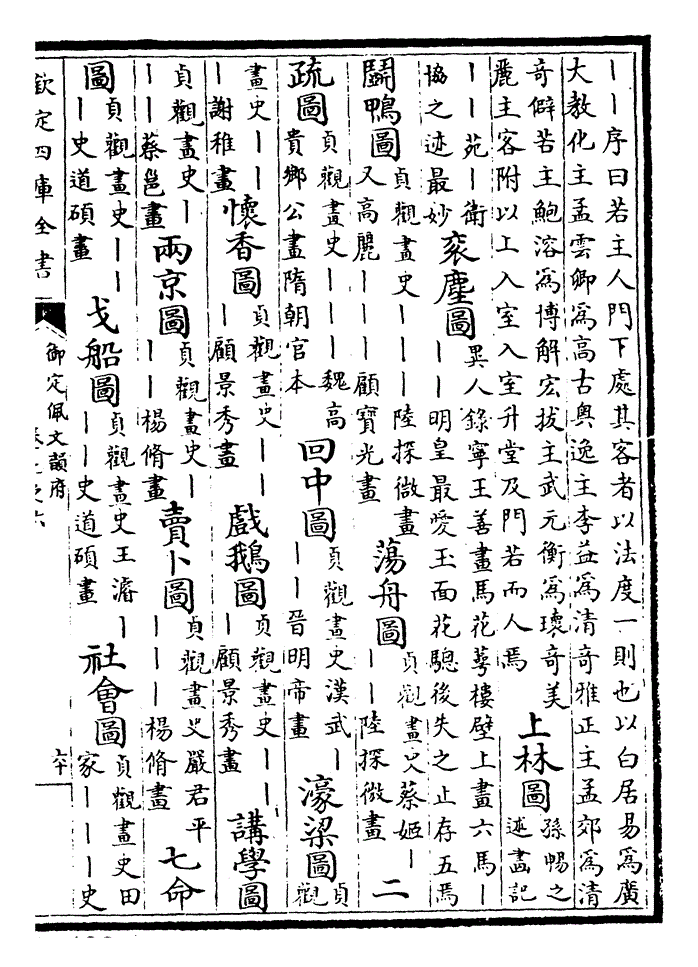 ｜｜序曰若主人門下處其客者以法度一則也以白居易為廣
大教化主孟雲卿為高古奧逸主李益為清奇雅正主孟郊為清
奇僻苦主鮑溶為博解宏拔主武元衡為瓌奇美
麗主客附以上入室入室升堂及門若而人焉
上林圖
孫暢之
述畫記
｜｜苑｜衛
協之迹最妙
衮塵圖
異人錄寧王善畫馬花萼樓壁上畫六馬｜
｜｜明皇最愛玉面花驄後失之止存五焉
鬭鴨圖
貞觀畫史｜｜｜陸探微畫
又高麗｜｜｜｜顧寶光畫
蕩舟圖
貞觀畫史蔡姬｜
｜｜陸探微畫
二
疏圖
貞觀畫史｜｜｜魏高
貴鄉公畫隋朝官本
回中圖
貞觀畫史漢武｜
｜｜晉明帝畫
濠梁圖
貞
觀
畫史｜｜
｜謝稚畫
懷香圖
貞觀畫史｜｜
｜顧景秀畫
戲鵝圖
貞觀畫史｜｜
｜顧景秀畫
講學圖
貞觀畫史｜
｜｜蔡邕畫
兩京圖
貞觀畫史｜
｜｜楊脩畫
賣卜圖
貞觀畫史嚴君平
｜｜｜楊脩畫
七命
圖
貞觀畫史｜｜
｜史道碩畫
戈船圖
貞觀畫史王濬｜
｜｜史道碩畫
社會圖
貞觀畫史田
家｜｜｜史
欽定四庫全書
御定佩文韻府
六十